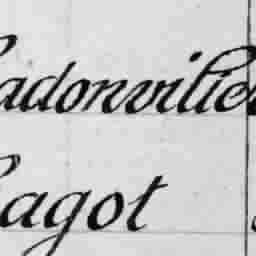 adonvilie
agot